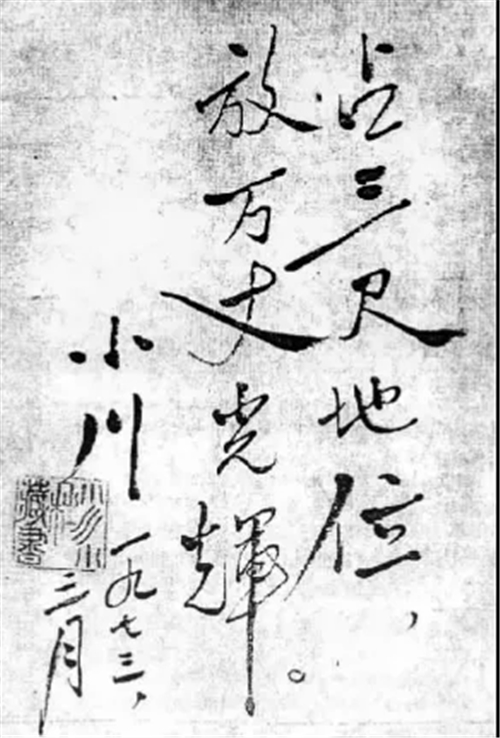 占三尺地位、
放万丈光輝。
小川
一九七三、
三月
藏書